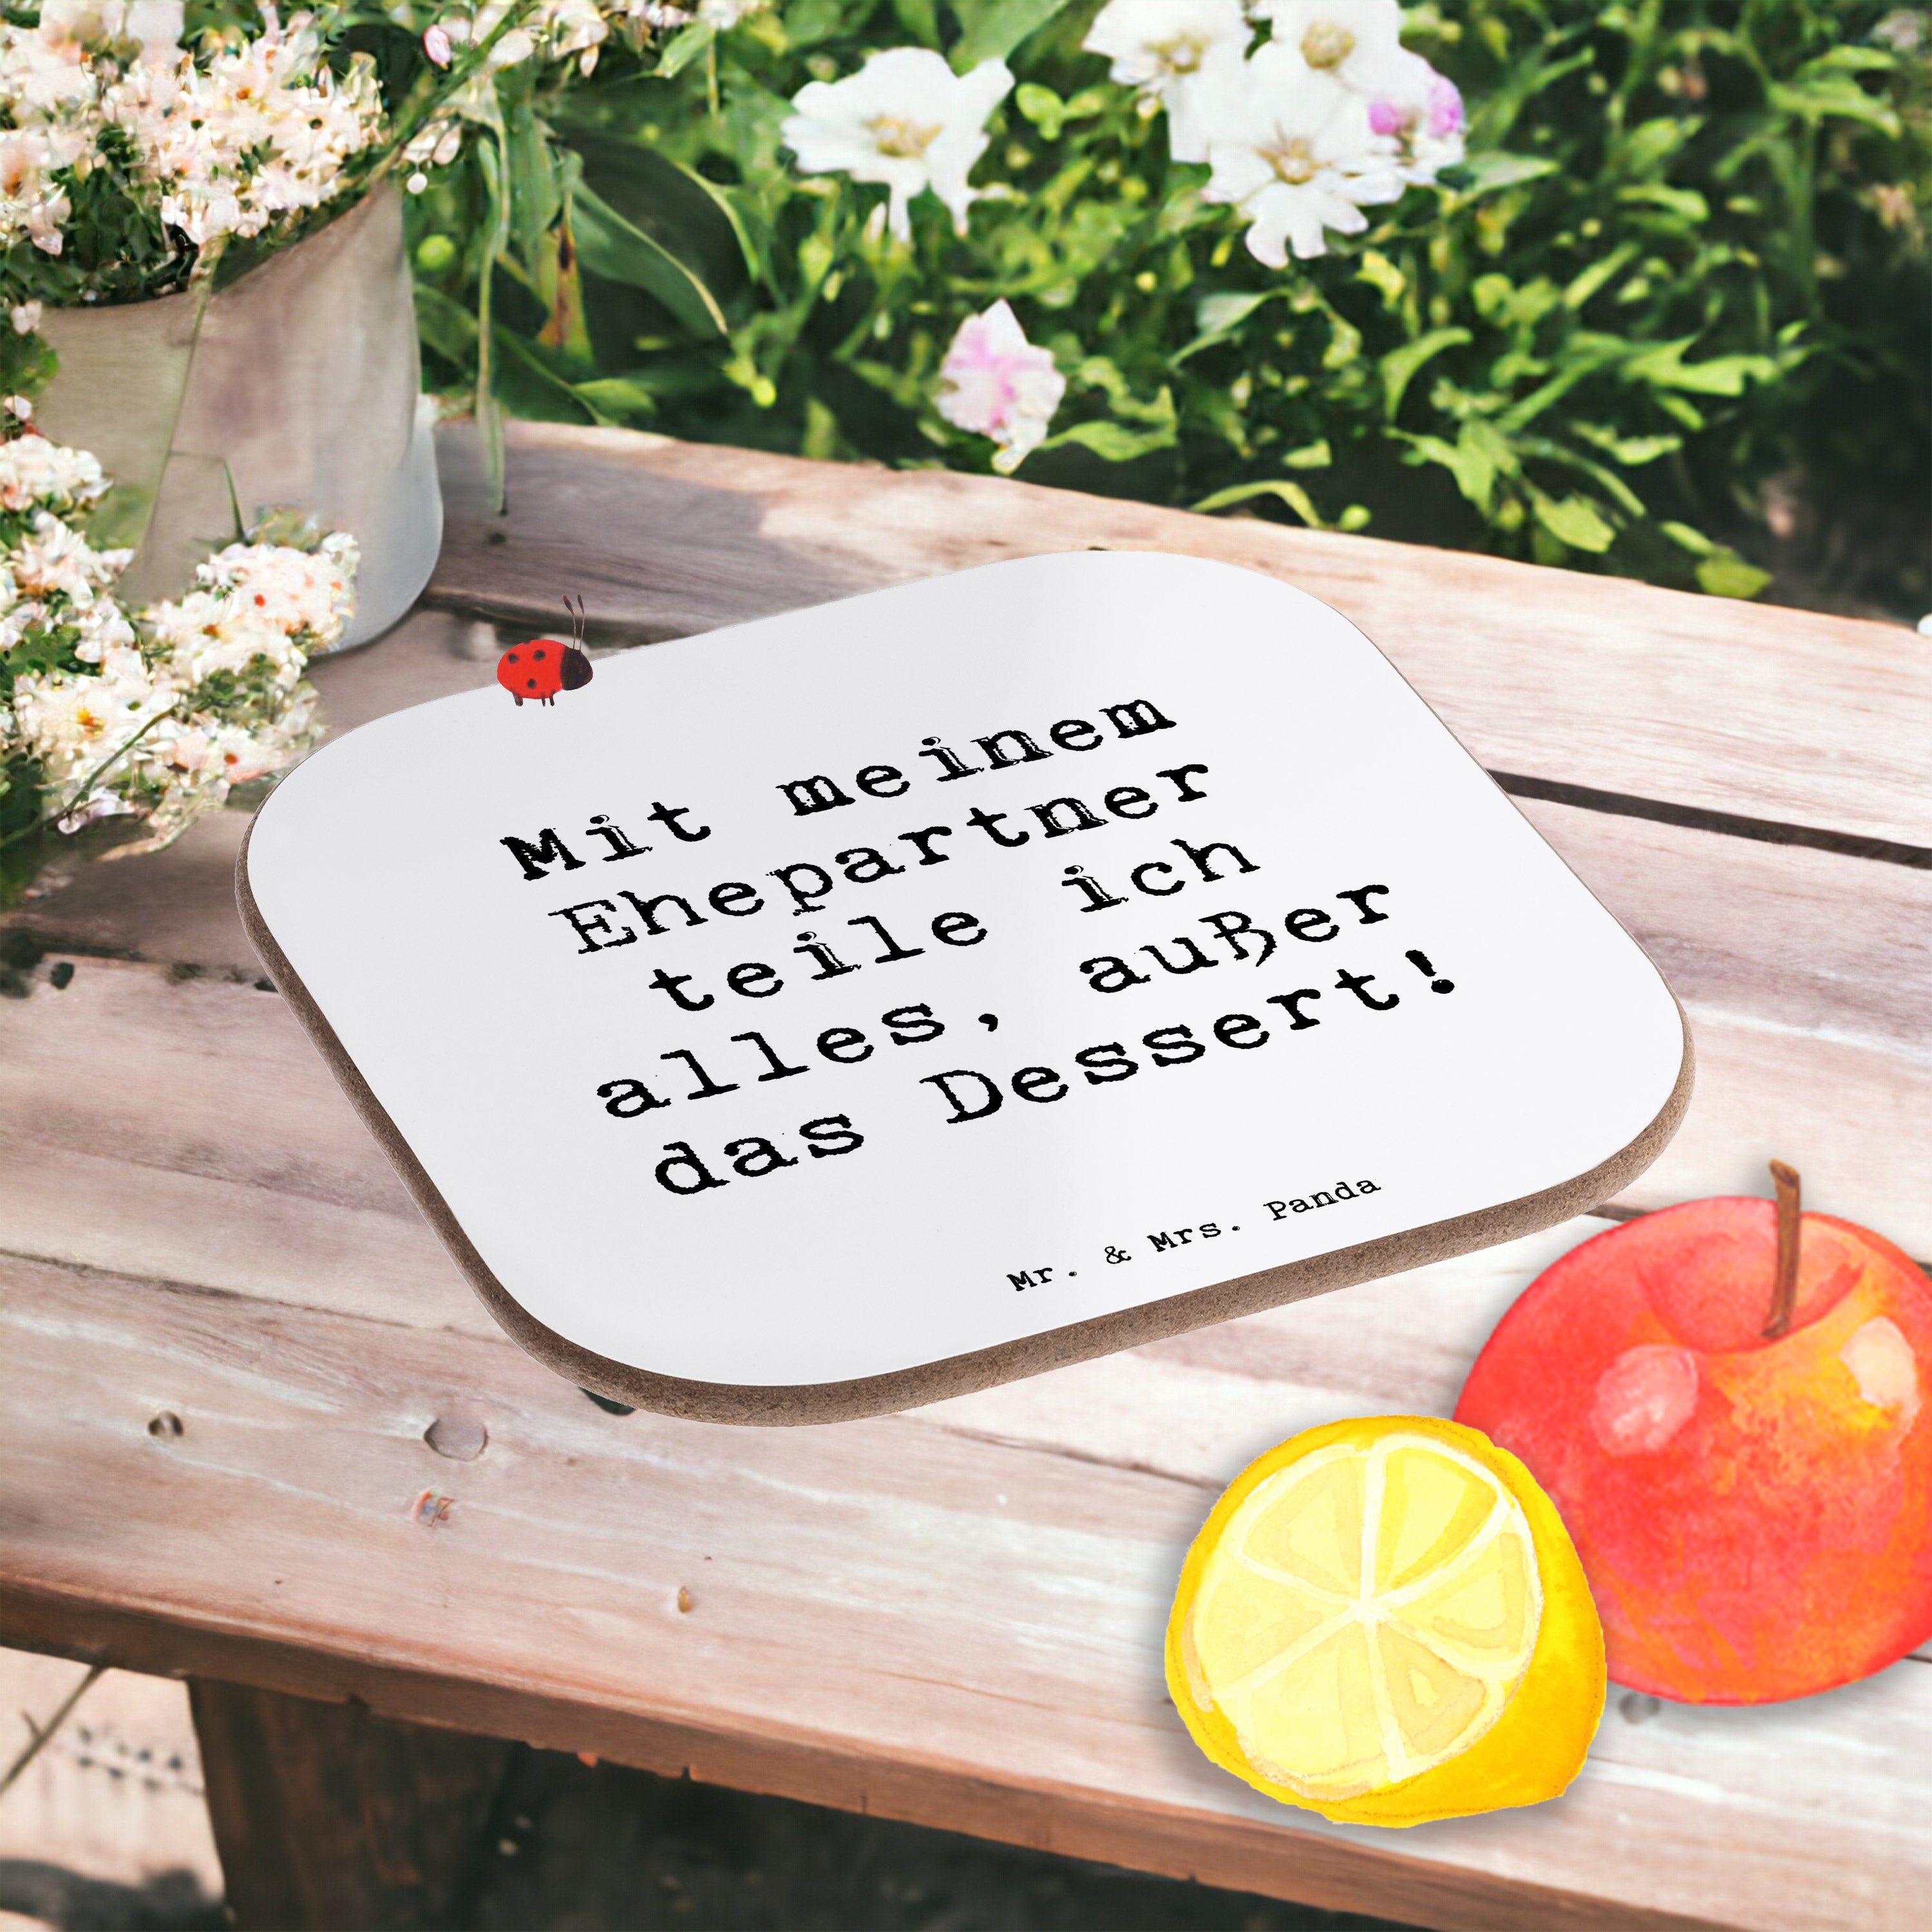 Mit meinem
Ehepartner
teile ich
alles, außer
das Dessert!
Mr. & Mrs. Panda